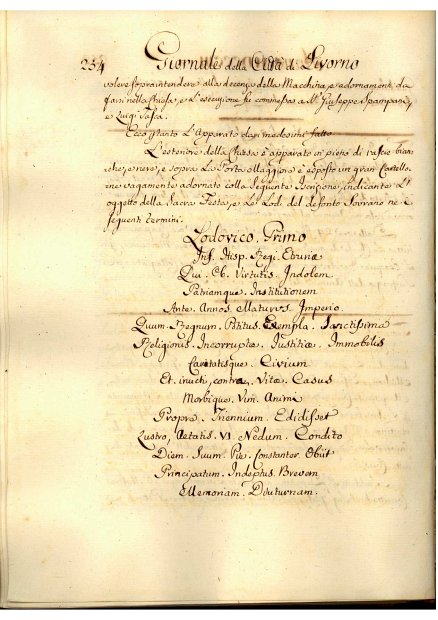 254 Giornale della Città di Livorno
volere sopraintendere alla decenza della Macchina, e adornamenti da
farsi nella Chiesa, e L'esecuzione fu commessa a Sr. Giuseppe Spampani,
e Luigi Tasca.
Ecco pertanto L'Apparato da i medesimi fatto
L'esteriore della Chiesa è apparato in pieno di rascie bian
che, e nere, e sopra La Porta Maggiore è esposto un gran Cartello
ne vagamente adornato colla Seguente Iscrizione, indicante L'
oggetto della Sacra Festa, e Le Lodi del defonto Sovrano ne i
seguenti termini.
Lodovico. Primo
Inf. Hisp. Regi. Etruriæ
Qui. Ob. Virtutis. Indolem.
Patriamque. Institutionem
Ante. Annos. Maturus. Imperio.
Quum. Regnum. Potitus. Exempla. Sanctissima
Religionis. Incorruptæ. Iustitiæ. Immobilis
Caritatisque. Civium
Et. invicti, contra, Vitæ. Casus
Morbique. Vim. Animi
Prope. Triennium. Edidisset
Lustro, Aetatis. VI Nedum. Condito
Diem. Suum. Pie. fonstanter. Obiit
Principatum. Indeptus. Brevem
Memoriam. Diuturnam.